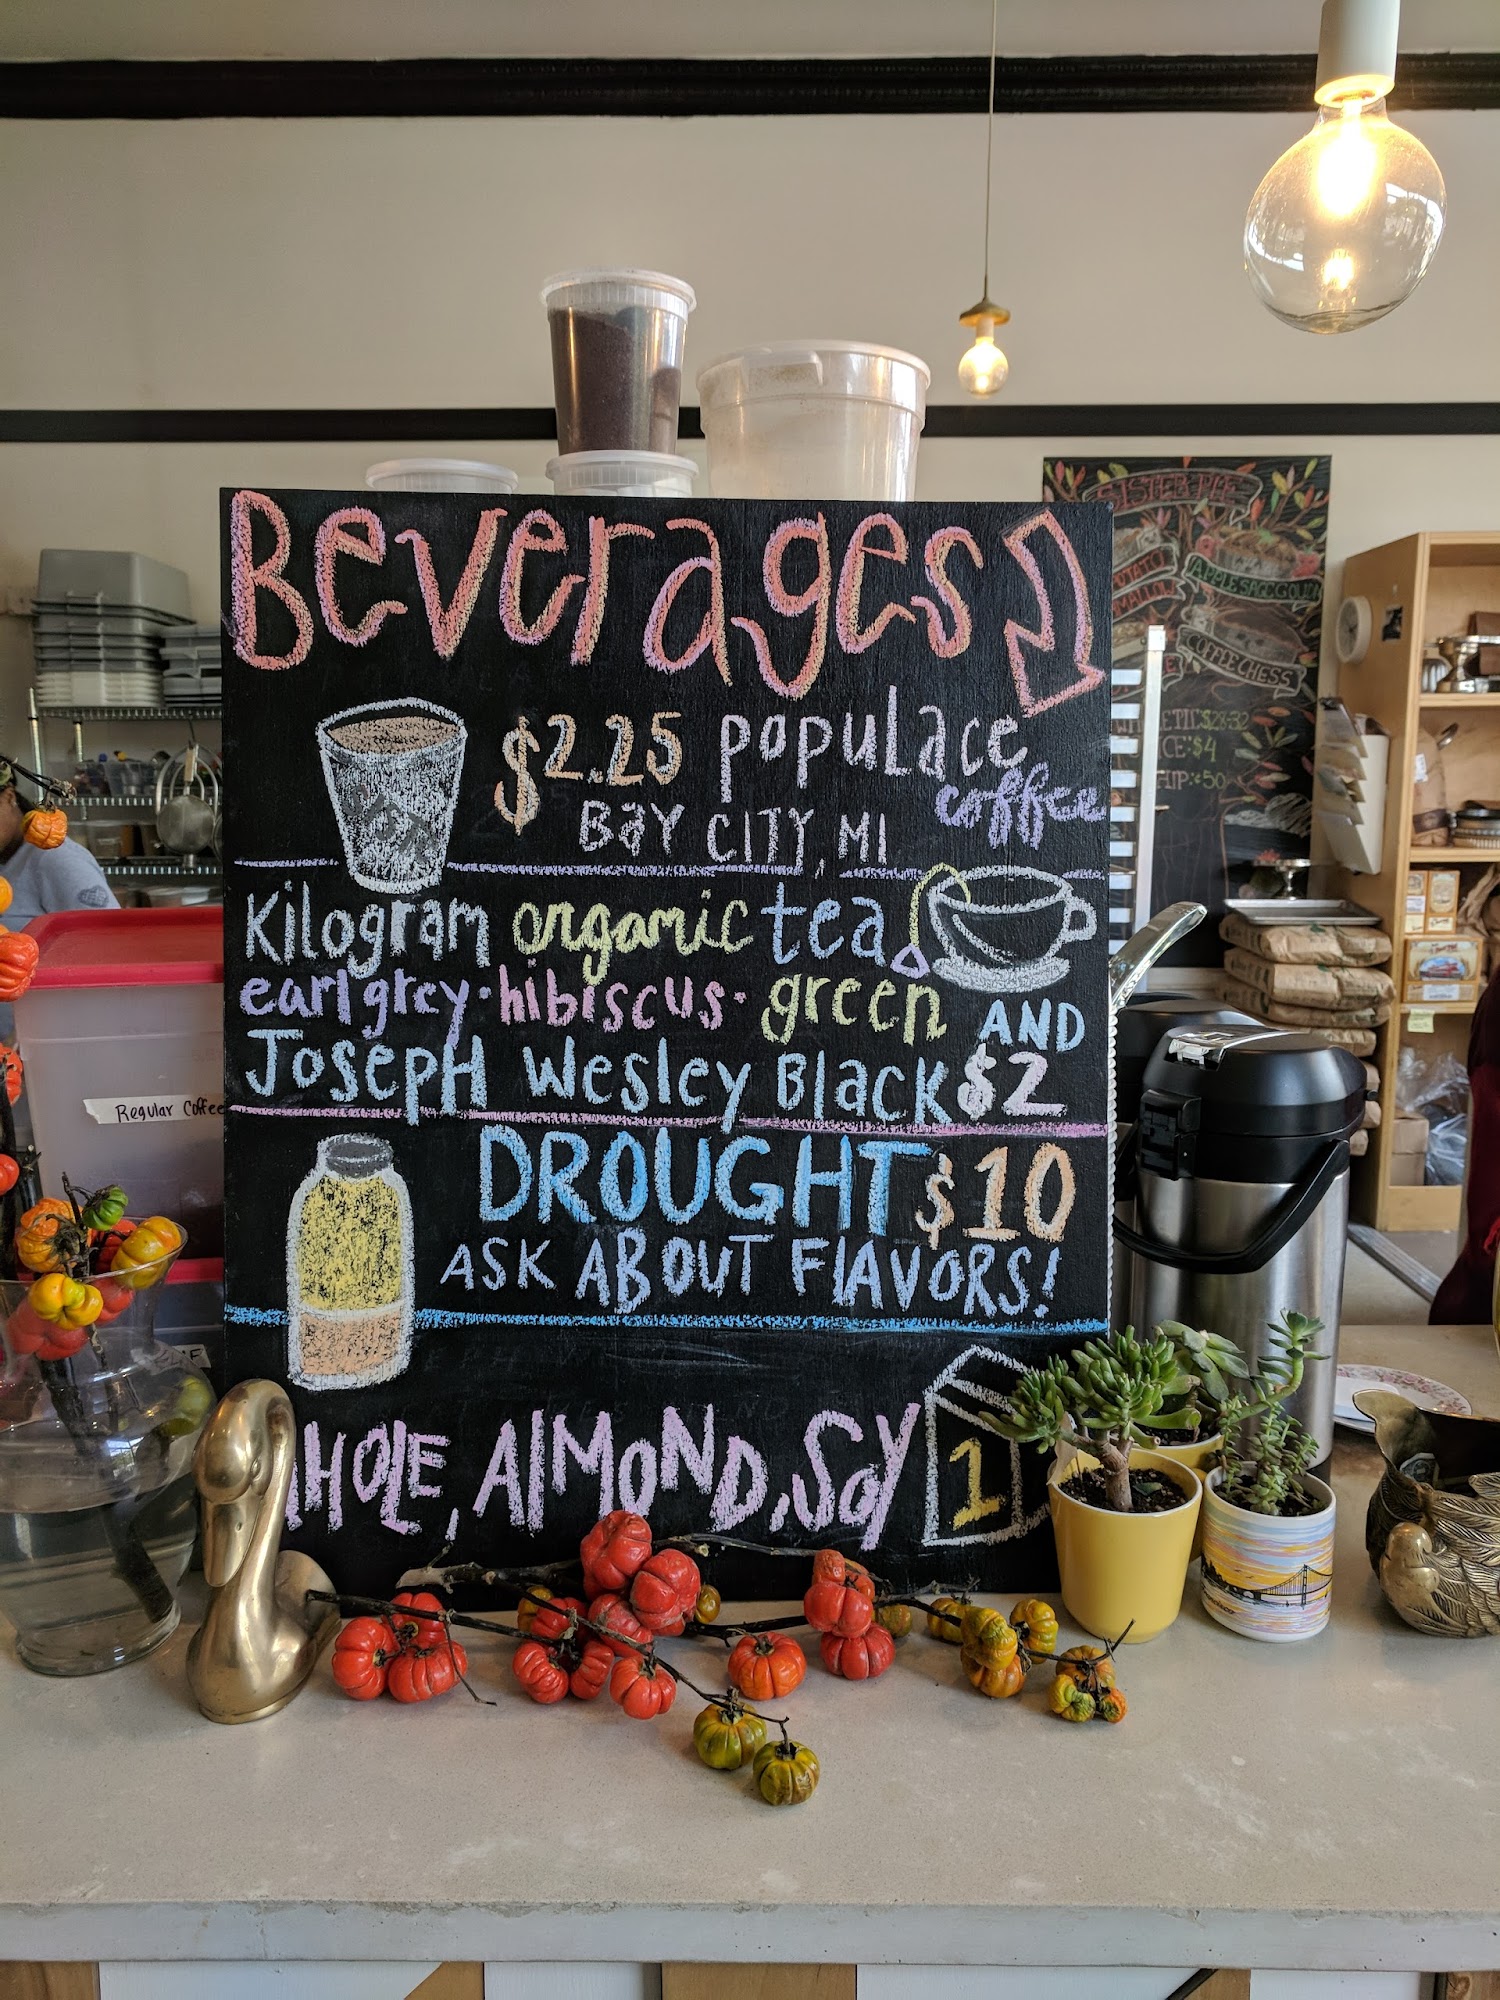 Beverages
$2.25 populace
coffee
BAY CITY, MI
Kilogram organic tea
earl grey · hibiscus · green
AND
Joseph Wesley Black $2
DROUGHT $10
ASK ABOUT FLAVORS!
HOLE, ALMOND, Soy
1
Regular Coffee
SISTER PIE
APPLE SAGE GOUDA
COFFEE CHESS